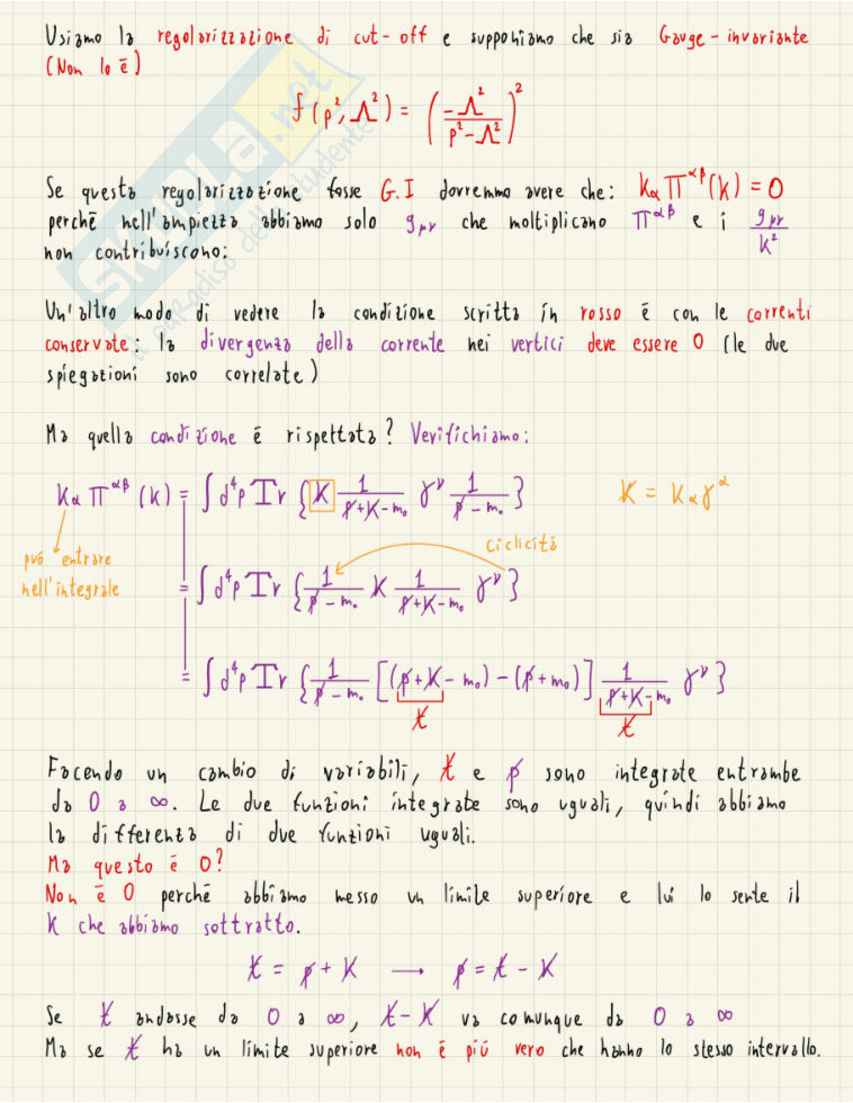 Usiamo la regolarizzazione di cut-off e supponiamo che sia Gauge-invariante
(Non lo è)
f(p², Λ²) = (-Λ² / p²-Λ²)²
Se questa regolarizzazione fosse G.I dovremmo avere che: kα Π^αβ(k) = 0
perchè nell'ampiezza abbiamo solo gμν che moltiplicano Π^αβ e i gμν/k²
non contribuiscono:
Un'altro modo di vedere la condizione scritta in rosso è con le correnti
conservate: la divergenza della corrente nei vertici deve essere 0 (le due
spiegazioni sono correlate)
Ma quella condizione è rispettata? Verifichiamo:
kα Π^αβ (k) = ∫d⁴p Tr {k̸ 1/(p̸+k̸-m₀) γ^ν 1/(p̸-m₀)}
k̸ = kα γ^α
può entrare
nell'integrale
ciclicità
= ∫d⁴p Tr {1/(p̸-m₀) k̸ 1/(p̸+k̸-m₀) γ^ν}
= ∫d⁴p Tr {1/(p̸-m₀) [(p̸+k̸-m₀)-(p̸+m₀)] 1/(p̸+k̸-m₀) γ^ν}
t̸ t̸
Facendo un cambio di variabili, t̸ e p̸ sono integrate entrambe
da 0 a ∞. Le due funzioni integrate sono uguali, quindi abbiamo
la differenza di due funzioni uguali.
Ma questo è 0?
Non è 0 perchè abbiamo messo un limite superiore e lui lo sente il
k che abbiamo sottratto.
t̸ = p̸ + k̸ → p̸ = t̸ - k̸
Se t̸ andasse da 0 a ∞, t̸-k̸ va comunque da 0 a ∞
Ma se t̸ ha un limite superiore non è più vero che hanno lo stesso intervallo.
SKUOLA.net
il paradiso dello studente